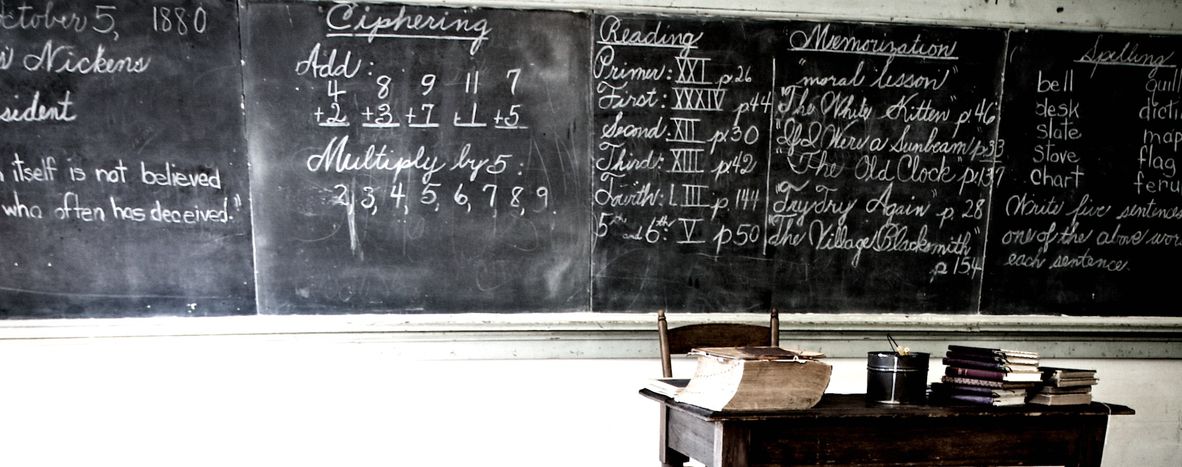 ctober 5, 1880
Nickens
sident
itself is not believed
who often has deceived."
Ciphering
Add:
4 8 9 11 7
+2 +3 +7 +1 +5
Multiply by 5:
2, 3, 4, 5, 6, 7 8, 9
Reading
Primer: XXI p 26
First: XXXIV p 44
Second: XII p 30
Third: XIII p 42
Fourth: LIII p 144
5th and 6th: V p 50
Memorization
"moral lesson"
"The White Kitten" p 46
"If I Were a Sunbeam" p 33
"The Old Clock" p 137
"Try Try Again" p 28
"The Village Blacksmith"
p 154
Spelling
bell quill
desk dicti
slate map
stove flag
chart feru
Write five sentences
one of the above wor
each sentence.